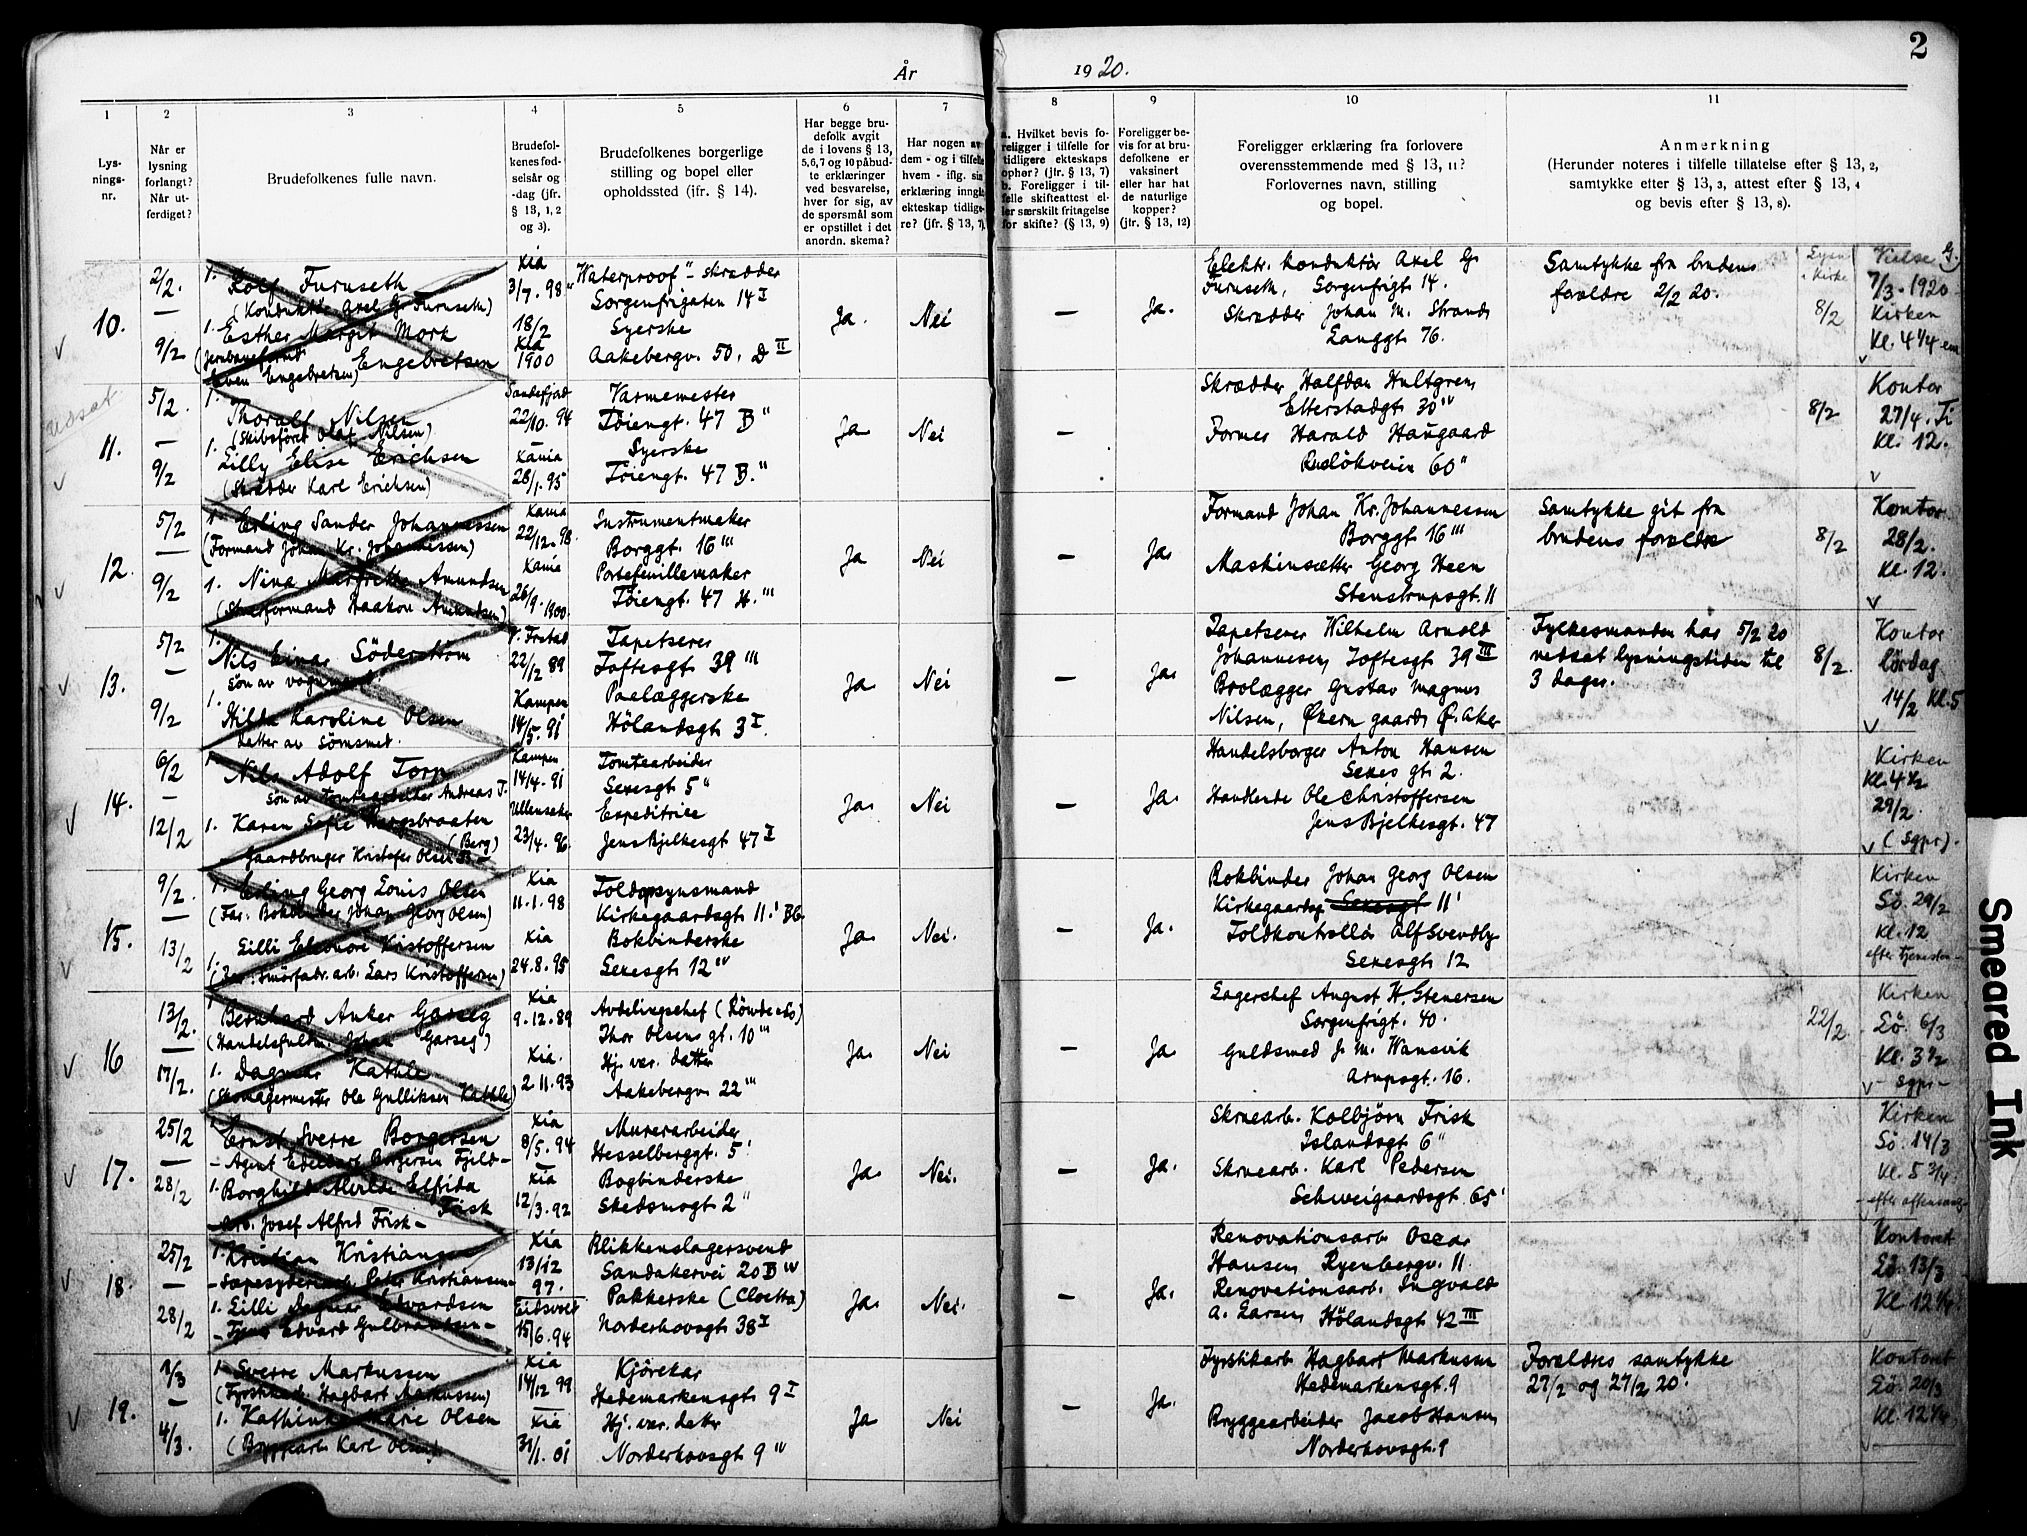 2
År
19 20.
1
2
3
4
5
6
7
8
9
10
11
Lys-
nings-
nr.
Når er
lysning
forlangt?
Når ut-
ferdiget?
Brudefolkenes fulle navn.
Brudefol-
kenes fød-
selsår og
-dag (jfr.
§ 13, 1, 2
og 3).
Brudefolkenes borgerlige
stilling og bopel eller
opholdssted (ifr. § 14).
Har begge bru-
defolk avgit
de i lovens § 13,
5, 6, 7 og 10 påbud-
te erklæringer
ved besvarelse,
hver for sig, av
de spørsmål som
er opstillet i det
anordn. skema?
Har nogen av
dem - og i tilfelle
hvem - iflg. sin
erklæring inngåt
ekteskap tidlige-
re? (jfr. § 13, 7)
a. Hvilket bevis fo-
religger i tilfelle for
tidligere ekteskaps
ophør? (jfr. § 13, 7)
b. Foreligger i til-
felle skifteattest el-
ler særskilt fritagelse
for skifte? (§ 13, 9)
Foreligger be-
vis for at bru-
defolkene er
vaksinert
eller har hat
de naturlige
kopper?
(jfr. § 13, 12)
Foreligger erklæring fra forlovere
overensstemmende med § 13, 11?
Forlovernes navn, stilling
og bopel.
Anmerkning
(Herunder noteres i tilfelle tillatelse efter § 13, 2,
samtykke efter § 13, 3, attest efter § 13, 4
og bevis efter § 13, 8).
10.
2/2.
—
9/2
1. Rolf Furuseth
(Konduktör Axel G. Furuseth)
1. Esther Margit Mork
Engebretsen
Even Engebretsen)
Kia
3/7. 98
18/2
Kia
1900
"Waterproof"- skrædder
Sorgenfrigaten 14 I
Syerske
Aakebergv. 50. D II
Ja.
Nei
—
Ja.
Elektr. konduktör Axel G.
Furuseth, Sorgenfrigt 14.
Skrædder Johan M. Strand
Langgt 76.
Samtykke fra brudens
forældre 2/2 20.
Lysn
i Kirke
8/2
Vielse
7/3 - 1920
Kirken
Kl. 4 1/4 em
11.
5/2.
—
9/2
1. Thoralf Nilsen
(Skibsfører Olaf Nilsen)
1. Lilly Elise Erichsen
(Skrædder Karl Erichsen)
Sandefjord
22/10. 94
Kania
28/1. 95
Varmemester
Töiengt. 47 B "
Syerske
Töiengt. 47 B. "
Ja
Nei
—
Skrædder Halfdan Hultgren
Etterstadgt 30 IV
Former Harald Haugaard
Rusløkveien 60 "
8/2
Kontor
27/4. Ti
Kl. 12.
12.
5/2
—
9/2
1. Erling Sander Johannessen
(Formand Johan Kr. Johannessen)
1. Nina Margrethe Amundsen
Haakon Amundsen)
Kania
22/12. 98.
Kania
26/9. 1900.
Instrumentmaker
Borggt. 16 III
Portefeuillemaker
Töiengt. 47 H. III
Ja
Nei
—
Ja.
Formand Johan Kr. Johannessen
Borggt 16 III
Maskinsætter Georg Heen
Stenstrupsgt. 11
Samtykke git fra
brudens forældre
8/2
Kontor
28/2.
Kl. 12.
13.
5/2
—
9/2
1. Nils Einar Söderström
Sön av
1. Hilda Karoline Olsen
Datter av Sömsmed.
22/12 89
Kampen
14/5. 91
Tapetserer
Toftesgt 39 III
Pælæggerske
Hölandsgt 3 I.
Ja
Nei
—
Ja.
Tapetserer Wilhelm Arnold
Johannesen, Toftesgt 39 III
Brolægger Gustav Magnus
Nilsen, Økern gaard, Ø. Aker
Fylkesmanden har 5/2 20
nedsat lysningstiden til
3 dager.
8/2.
Kontor
lördag
14/2 Kl. 5
14.
6/2
—
12/2
1. Nils Adolf Torp
Sön av Tomtearbeider Andreas T.
1. Karen Sofie
(Berg)
Gaardbruger Kristofer Olsen B—
Kampen
14/4. 91
Ullensaker
23/4. 96
Tomtearbeider
Sexesgt 5 "
Expeditrice
Jens Bjelkesgt 47 I
Ja.
Nei
—
Ja.
Handelsborger Anton Hansen
Sexes gt 2.
Handlende Ole Christoffersen
Jens Bjelkesgt. 47
Kirken
Kl. 4 1/2
29/2
(Sgpr).
15.
9/2.
—
13/2
1. Erling Georg Louis Olsen
(Far: Bokbinder Johan Georg Olsen)
1. Lilli Eleonore Kristoffersen
(Far: Smörfabr. arb. Lars Kristoffersen)
Kia
11.1.98
Kia
24.8.95
Toldopsynsmand
Kirkegaardsgt 11. I Bb
Bokbinderske
Sexesgt 12 IV
Ja.
Nei.
—
Ja.
Bokbinder Johan Georg Olsen
Kirkegaardsg Sexesgt 11 I
Toldkontrollör Alf Svendby
Sexesgt 12
Kirken
Sö. 29/2
Kl. 12
efter tjenesten—
16
13/2.
—
17/2.
1. Bernhard Anker Garseg
(Handelsfuldm. Johan Garseg)
1. Dagmar Kathle
(Skomagermester Ole Gulliksen Kathle)
Kia
9.12.89
Kia.
2.11.93
Avdelingschef (
Thor Olsens gt. 10 III
Hj. vær. datter
Aakebergv 22 III
Ja.
Nei
—
Ja
Lagerchef August H. Stenersen
Sorgenfrigt. 40.
Guldsmed J. M. Wansvik
Arupsgt. 16.
22/2.
Kirken
Sö. 6/3
Kl. 3 1/2
— Sgpr —
17.
25/2
—
28/2
1. Ernst Sverre Borgersen
— Agent Edelbart Borgersen Fjeld —
1. Borghild Alvilde Elfrida
Frisk
— Arb. Josef Alfred Frisk —
Kia
8/5. 94
Kia
12/3. 92
Murerarbeider
Hesselberggt. 5 I
Bogbinderske
Skedsmogt 2 "
Ja.
Nei.
—
Ja.
Skruearb. Kolbjörn Frisk
Islandsgt 6 "
Skruearb. Karl Pedersen
Schweigaardsgt. 65 I
Kirken
Sö. 14/3
Kl. 5 3/4.
— efter aftensang —
18.
25/2
—
28/2
1. Kristian Kristiansen
— Sæpesyderiarb. Peter Kristiansen —
1. Lilli Dagmar Edvardsen
Edvard Gulbrandsen —
Kia
13/12
97.
Eidsvold
15/6. 94
Blikkenslagersvend
Sandakervei 20 B IV
Pakkerske (Cloetta)
Norderhovsgt 38 I
Ja.
Nei.
—
Ja.
Renovationsarb Oscar
Hansen Ryenbergv. 11.
Renovationsarb. Ingvald
A. Larsen, Hölandsgt 42 III
Kontoret
Lö. 13/3
Kl 12 1/4
19.
1/3
—
4/3.
1. Sverre Markussen
(Fyrstikarb. Hagbart Markussen)
1. Kathinka Marie Olsen
(Bryggearb. Karl Olsen)
Kia
14/12 99
Kia
31/1. 01
Kjörekar
Hedemarkensgt. 9 I
Hj. vær. datter
Norderhovsgt 9 IV
Ja
Nei
—
Ja.
Fyrstikarb Hagbart Markussen
Hedemarkensgt. 9
Bryggearbeider Jacob Hansen
Norderhovsgt. 9
Forældres samtykke
27/2 og 27/2 20.
Kontoret
Lö. 20/3
Kl. 12 1/4
Smeared Ink